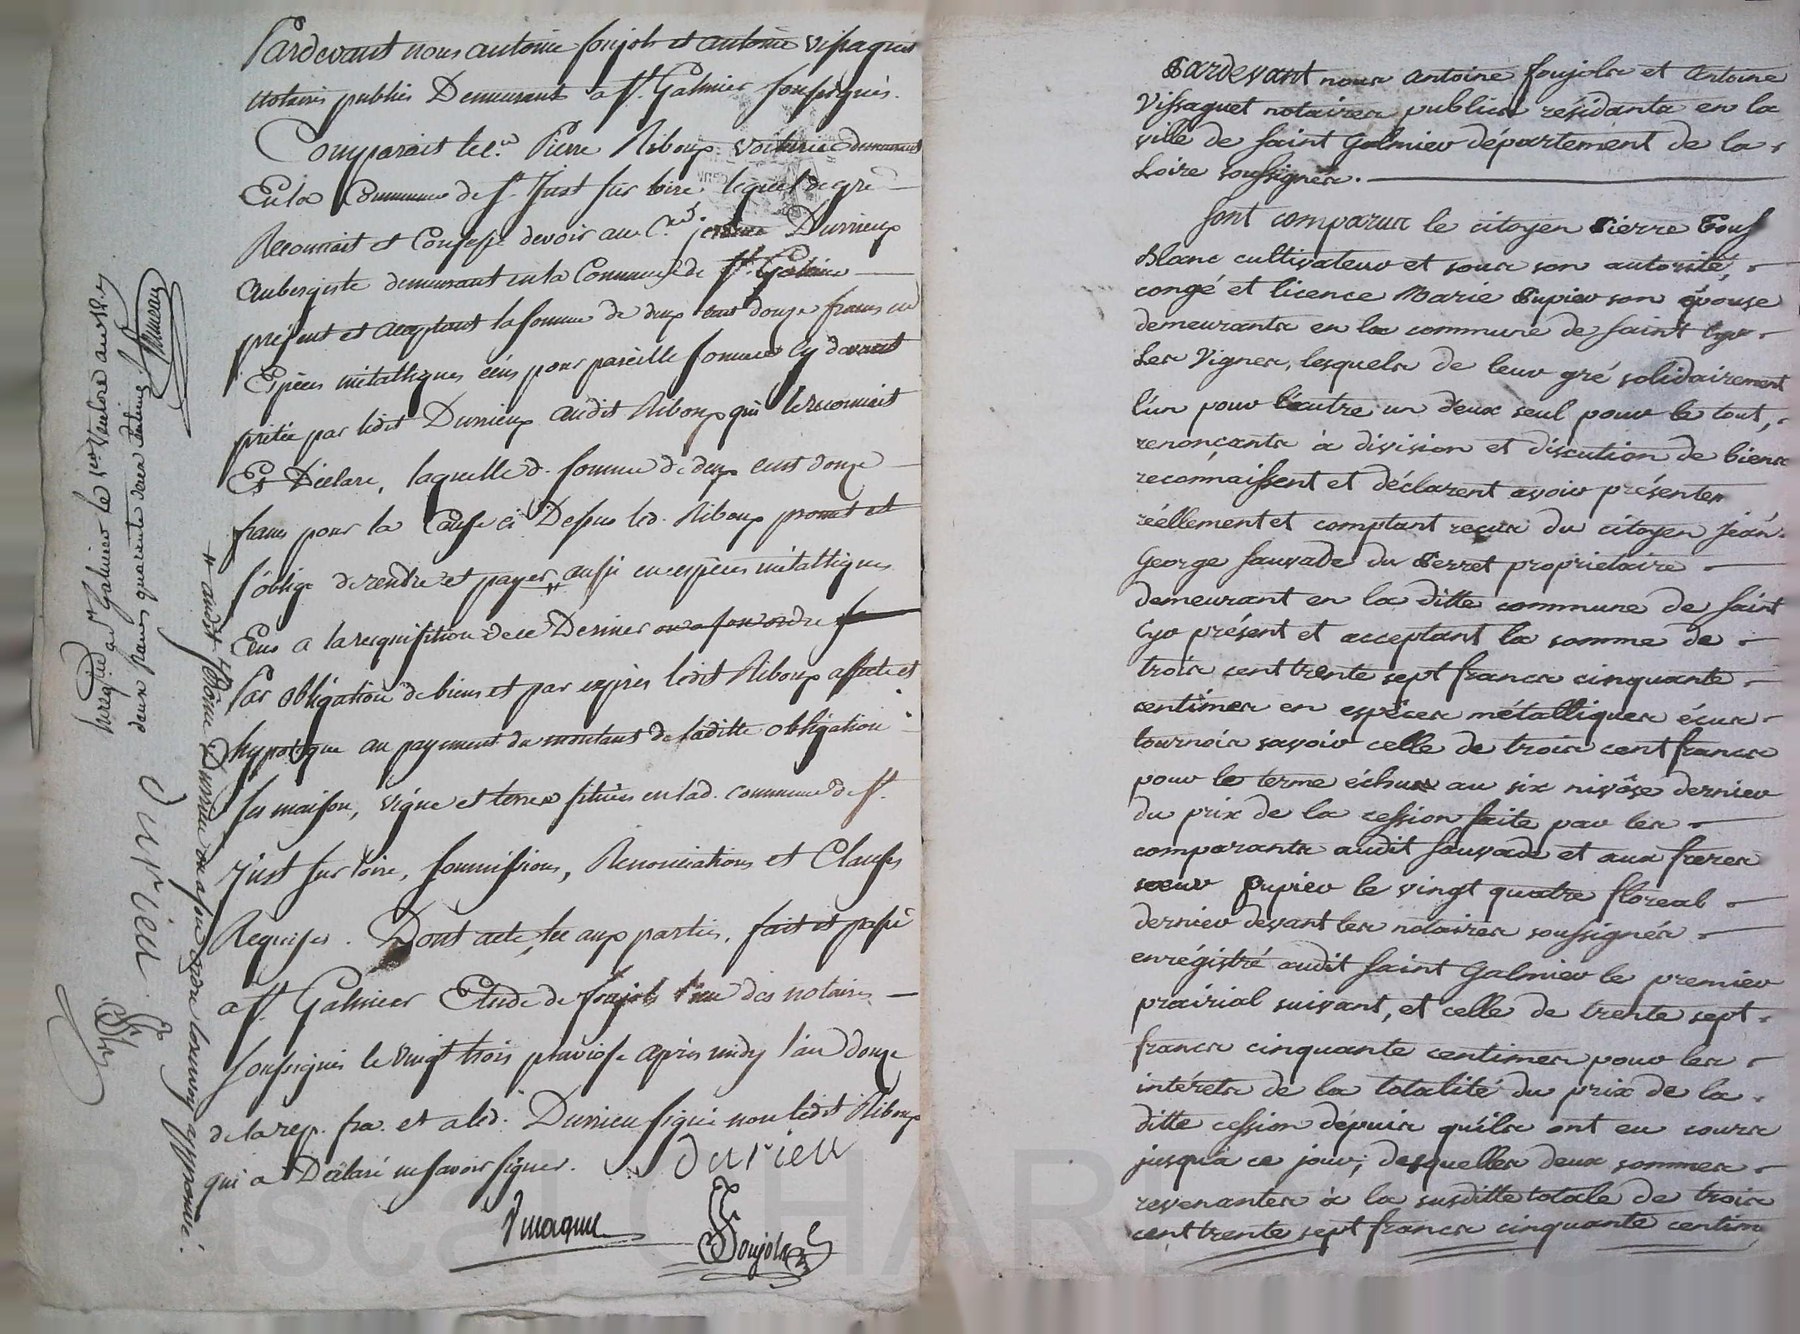 Pardevant nous antoine foujols et antoine vissaguet
notaires publics Demeurants a St. Galmier soussignés.
Comparait le Cn. Pierre Riboux voiturier demeurant
En la Commune de St. Just sur loire, lequel de gré
Reconnait et Confesse devoir au Cn. Durrieux
Aubergiste demeurant en la Commune de St. Galmier
présent et acceptant la somme de deux cent douze francs en
Espèces métalliques écus pour pareille somme cy devant
pretée par ledit Durrieux audit Riboux qui le reconnait
Et Déclare, laquelle d. somme de deux cent douze
francs pour la Cause ci Dessus led. Riboux promet et
s'oblige de rendre et payer aussi en espèces métalliques
Ecus a la requisition de ce Dernier ou a son ordre
Par obligation de biens et par exprès ledit Riboux affecte et
hypoteque au payement du montant de la ditte obligation
ses maison, vigne et terres situées en lad. commune de St.
Just sur loire, soumissions, Renonciations et Clauses
Requises. Dont acte, lu aux parties, fait et passé
a St. Galmier Etude de foujols l'un des notaires
soussignés le vingt trois pluviose après midy l'an douze
de la rep. fra. et a led. Durrieu signé non ledit Riboux
qui a Déclaré ne savoir signer. durieu
Foujols
Enregistré a St. Galmier le 1er. Ventose an 12
deux francs quarante deux centimes
audit Durrieu ou a son ordre approuvé.
durieu
Pardevant nous Antoine foujols et Antoine
Vissaguet notaires publics résidants en la
ville de Saint Galmier département de la
Loire soussignés.
Sont comparus le citoyen Pierre
Blanc cultivateur et sous son autorité,
congé et licence Marie Pupier son épouse
demeurants en la commune de Saint Cyr
Les Vignes, lesquels de leur gré solidairement
l'un pour l'autre un d'eux seul pour le tout,
renonçants à division et discution de biens
reconnaissent et déclarent avoir présentem
réellement et comptant reçus du citoyen Jean
George Sauvade du Perret proprietaire
demeurant en la ditte commune de Saint
Cyr présent et acceptant la somme de
trois cent trente sept francs cinquante
centimes en espèces métalliques écus
tournois savoir celle de trois cent francs
pour le terme échus au six nivôse dernier
du prix de la cession faite par les
comparants audit Sauvade et aux freres
soeur Pupier le vingt quatre floreal
dernier devant les notaires soussignés
enrégistré audit Saint Galmier le premier
prairial suivant, et celle de trente sept
francs cinquante centimes pour les
intérets de la totalité du prix de la
ditte cession dépuis quils ont eu cours
jusqu'a ce jour; desquelles deux sommes
revenantes à la susditte totale de trois
cent trente sept francs cinquante centim
Pascal CHAR